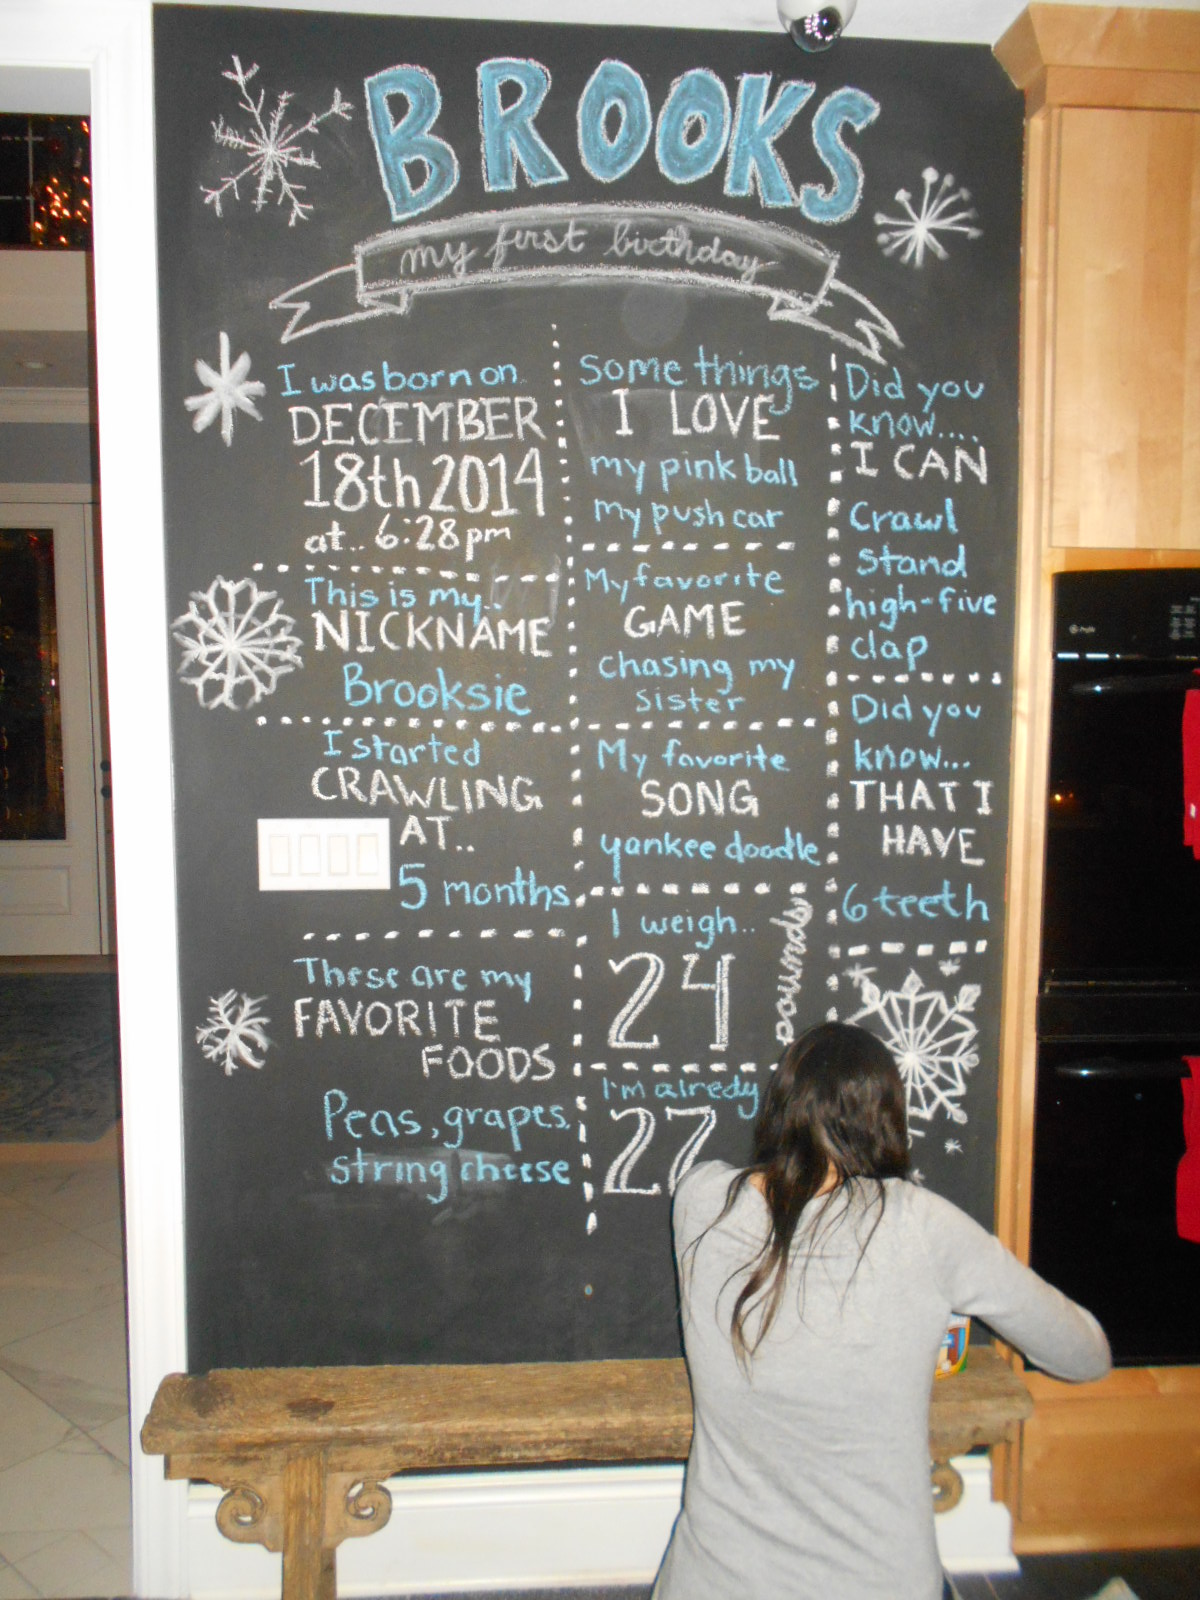 BROOKS
my first birthday
I was born on
DECEMBER
18th 2014
at.. 6:28pm
This is my..
NICKNAME
Brooksie
I started
CRAWLING
AT..
5 months
These are my
FAVORITE
FOODS
Peas, grapes,
string cheese
some things
I LOVE
my pink ball
my push car
My favorite
GAME
chasing my
sister
My favorite
SONG
yankee doodle
I weigh..
24
pounds
I'm alredy
27
Did you
know....
I CAN
Crawl
stand
high-five
clap
Did you
know...
THAT I
HAVE
6 teeth